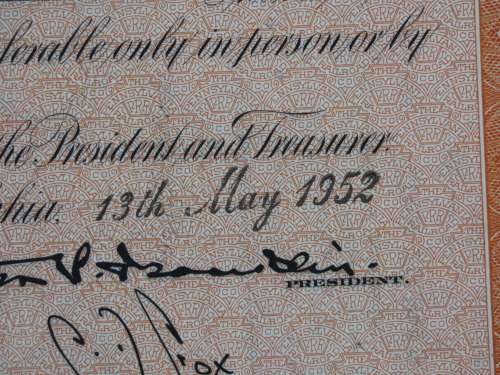 ferable only in person or by
the President and Treasurer.
phia. 13th May 1952
P. Franklin.
PRESIDENT.
C. Fox